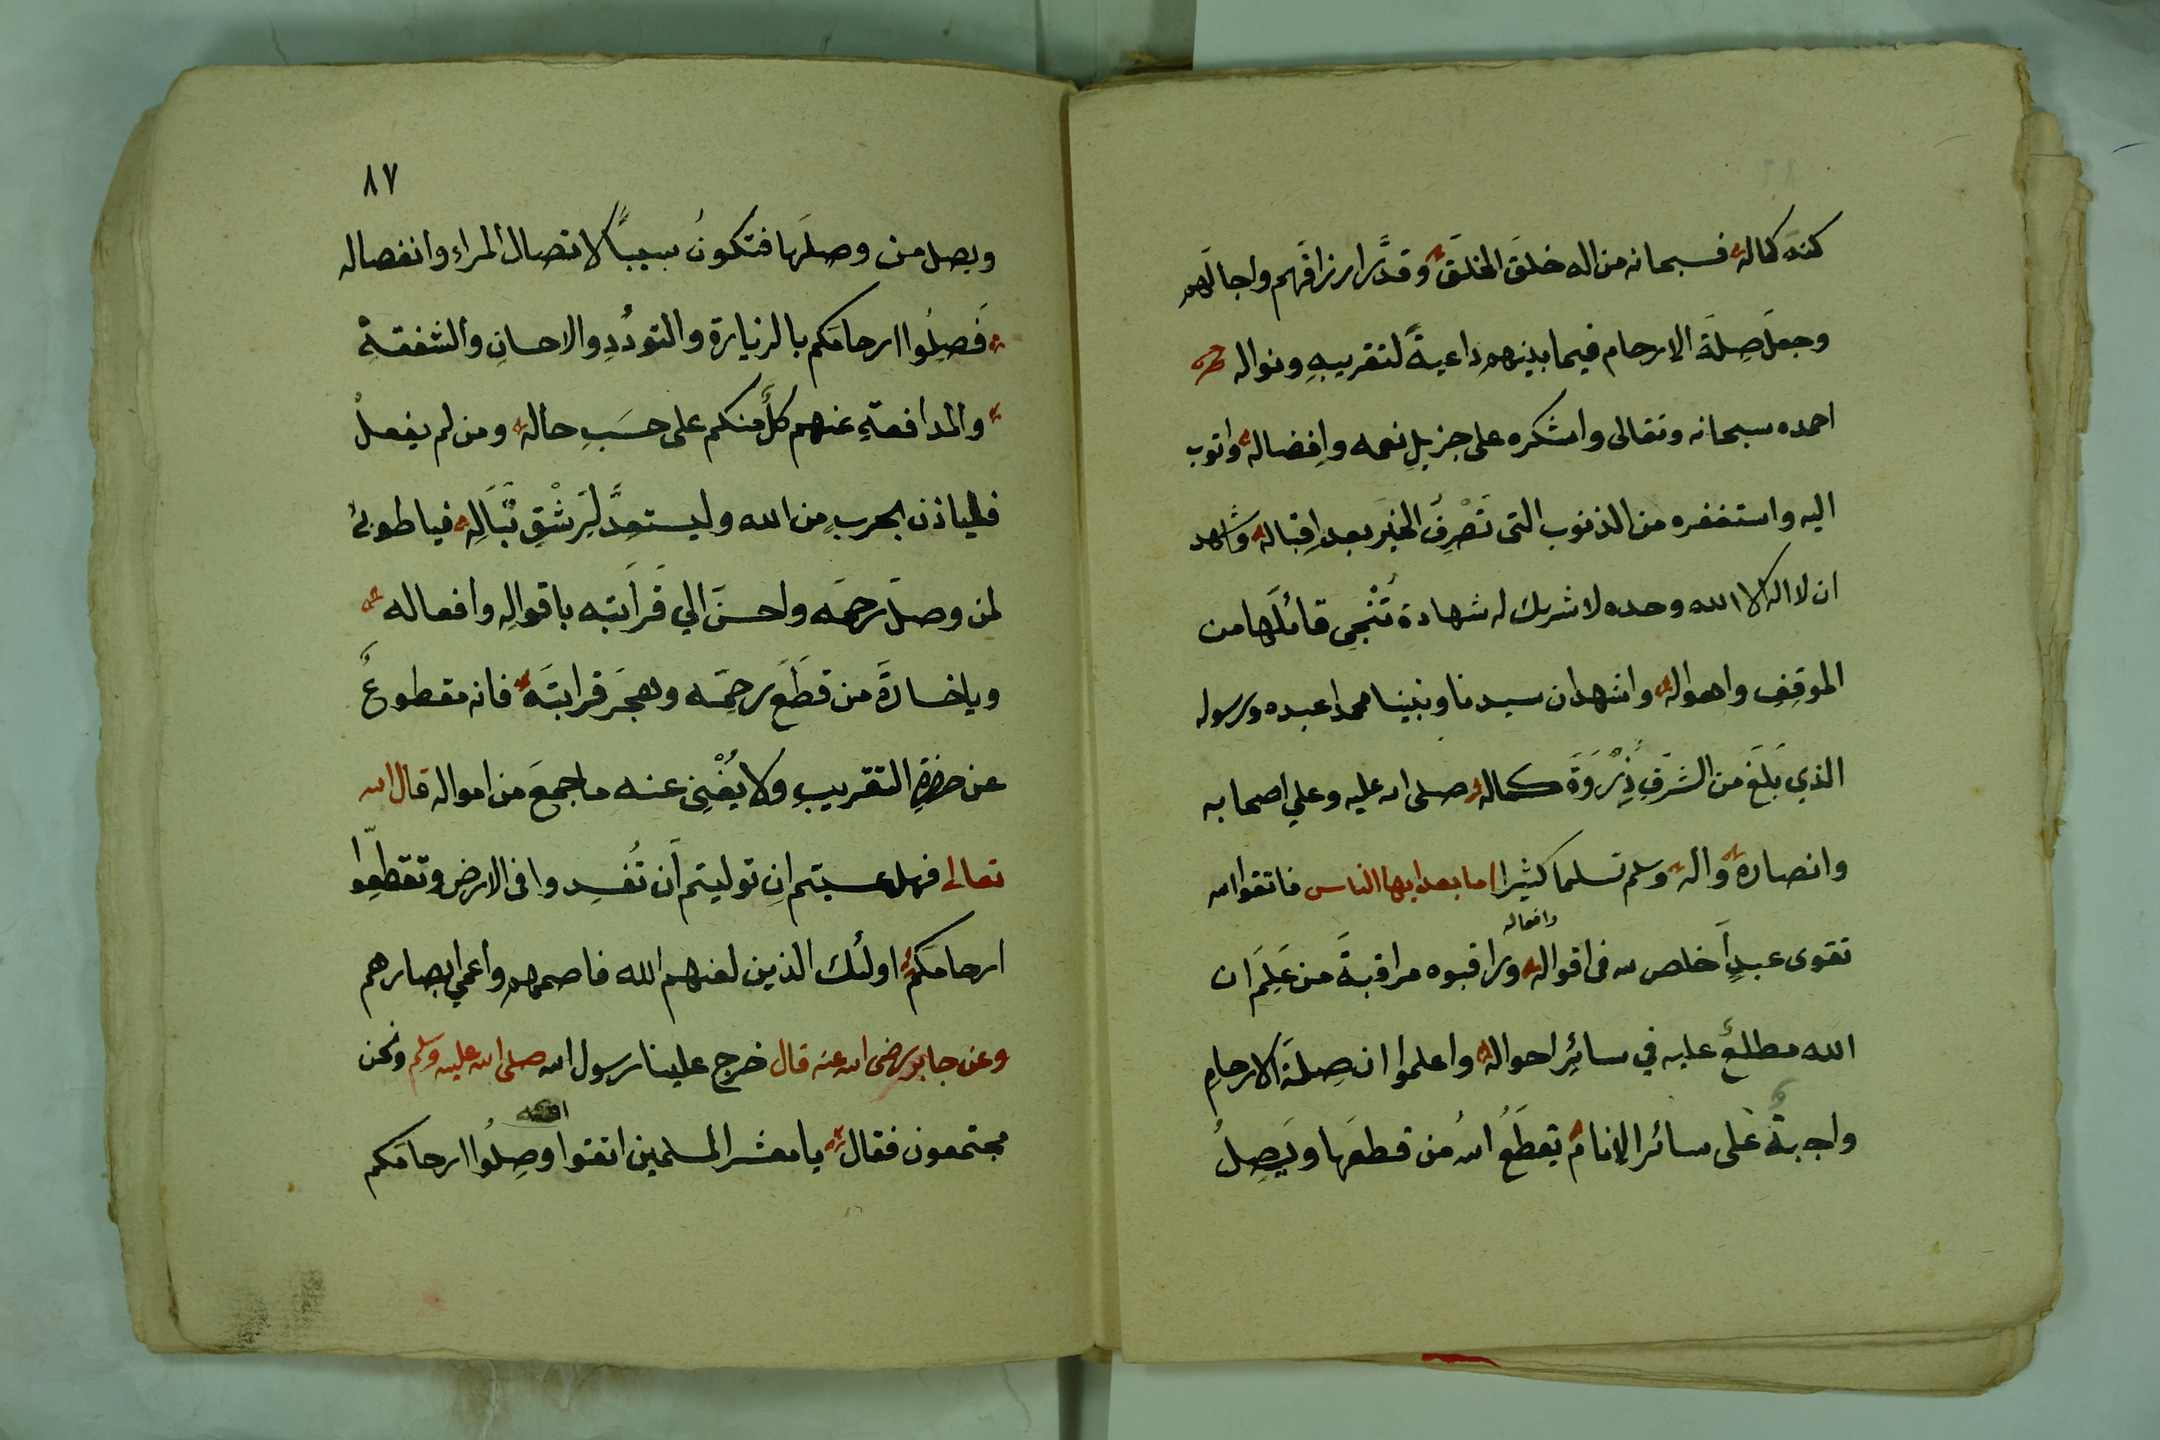 كنه كماله فسبحانه من اله خلقَ الخلقَ وقدَّر ارزاقَهم واجالَهم
وجعلَ صِلةَ الارحام فيما بينهم داعيةً لتقريبهِ ونواله
احمده سبحانه وتعالى واشكره على جزيلِ نعمه وافضاله واتوب
اليه واستغفره من الذنوب التى تَصْرِفُ الخيَر بعد اِقباله واشهد
ان لا اله الا الله وحده لا شريك له شهادة تُنْجى قائلَها من
الموقِفِ واهواله واشهد ان سيدنا ونبينا محمدا عبده ورسوله
الذي بَلَغَ من الشرَفِ ذِرْوَةَ كماله صلى الله عليه وعلي اصحابه
وانصاره وآله وسلم تسلما كثيرا اما بعد ايها الناس فاتقوا الله
تقوى عبدٍ اَخلص لله فى اقواله وافعاله وراقبوه مراقبةَ من عَلِمَ ان
الله مطلعٌ عليه في سائرِ احواله واعلموا ان صِلةَ الارحامِ
واجبةٌ على سائر الانام يقطَعُ اللهُ من قطعَها ويَصِلُ
٨٧
ويصل من وصلَها فتكونُ سبباً لاتصال المراء وانفصاله
فَصِلُوا ارحامَكم بالزيارة والتودُدِ والاحسانِ والشفقةِ
والمدافعةِ عنهم كلٌ منكم على حسَبِ حاله ومن لم يفعلْ
فلياذن بحربٍ من الله وليستعدَّ لِرَشْقِ نْبَالِه فيا طوبى
لمن وصلَ رحمَه واحسنَ الي قَرَابتِه باقوالِه وافعاله
ويا خسارةَ من قطَعَ رحمَه وهجَرَ قرابتَه فانه مقطوعٌ
عن حضرةِ التقريبِ ولا يُغْنِى عنه ما جمعَ من امواله قال الله
تعالى فهل عسيتم اِن توليتم اَن تُفسدوا فى الارض وتقطّعوا
ارحامَكم اولئك الذين لعنهم الله فاصمهم واعمي ابصارهم
وعن جابر رضى الله عنه قال خرج علينا رسول الله صلى الله عليه وسلم ونحن
مجتمعون فقال يا معشر المسلمين اتقوا الله وصِلُوا ارحامَكم